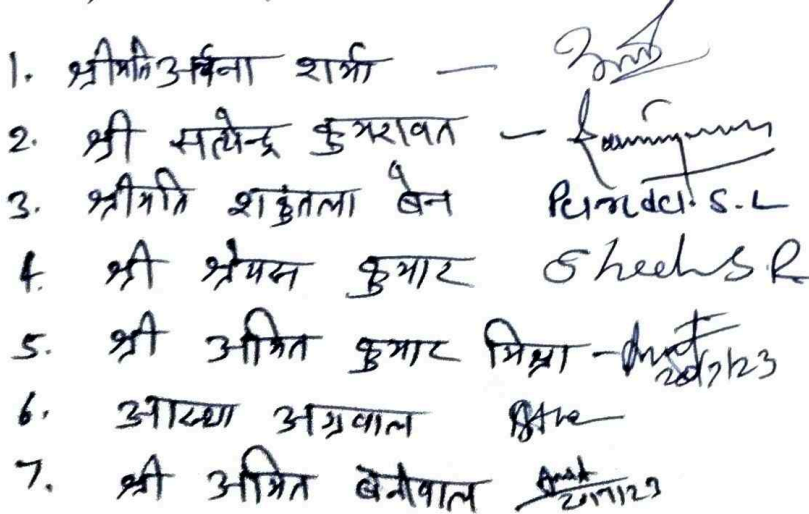 1. श्रीमति अर्चना शर्मा —
2. श्री सत्येन्द्र कुमरावत —
3. श्रीमति शकुंतला बेन Parmar. S. L
4. श्री श्रेयस कुमार Sheeh S R
5. श्री अमित कुमार मिश्रा - 20/7/23
6. आस्था अग्रवाल
7. श्री अमित बेनीवाल 20/7/23